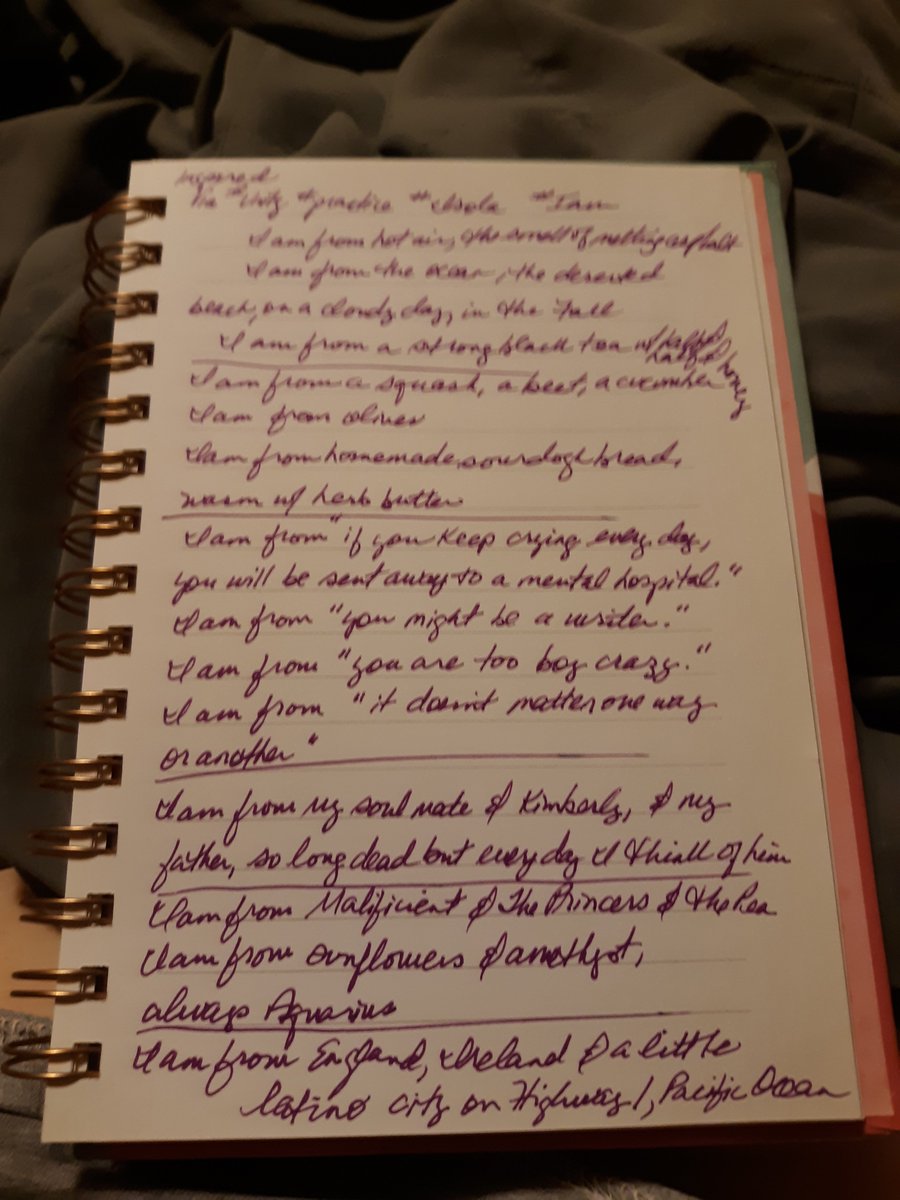 inspired
Via # #practice # #I am
I am from hot air, the smell of melting asphalt
I am from the ocean, the deserted
beach, on a cloudy day, in the Fall
I am from a strong black tea w/ half & half & honey
I am from a squash, a beet, a cucumber
I am from olives
I am from homemade sourdogh bread,
warm w/ herb butter
I am from "if you keep crying every day,
you will be sent away to a mental hospital."
I am from "you might be a writer."
I am from "you are too boy crazy."
I am from "it doesn't matter one way
or another"
I am from my soul mate & Kimberly, & my
father, so long dead but every day I think of him
I am from Malificient & The Princess & the Pea
I am from sunflowers & amethyst,
always Aquarius
I am from England, Ireland & a little
latino city on Highway 1, Pacific Ocean